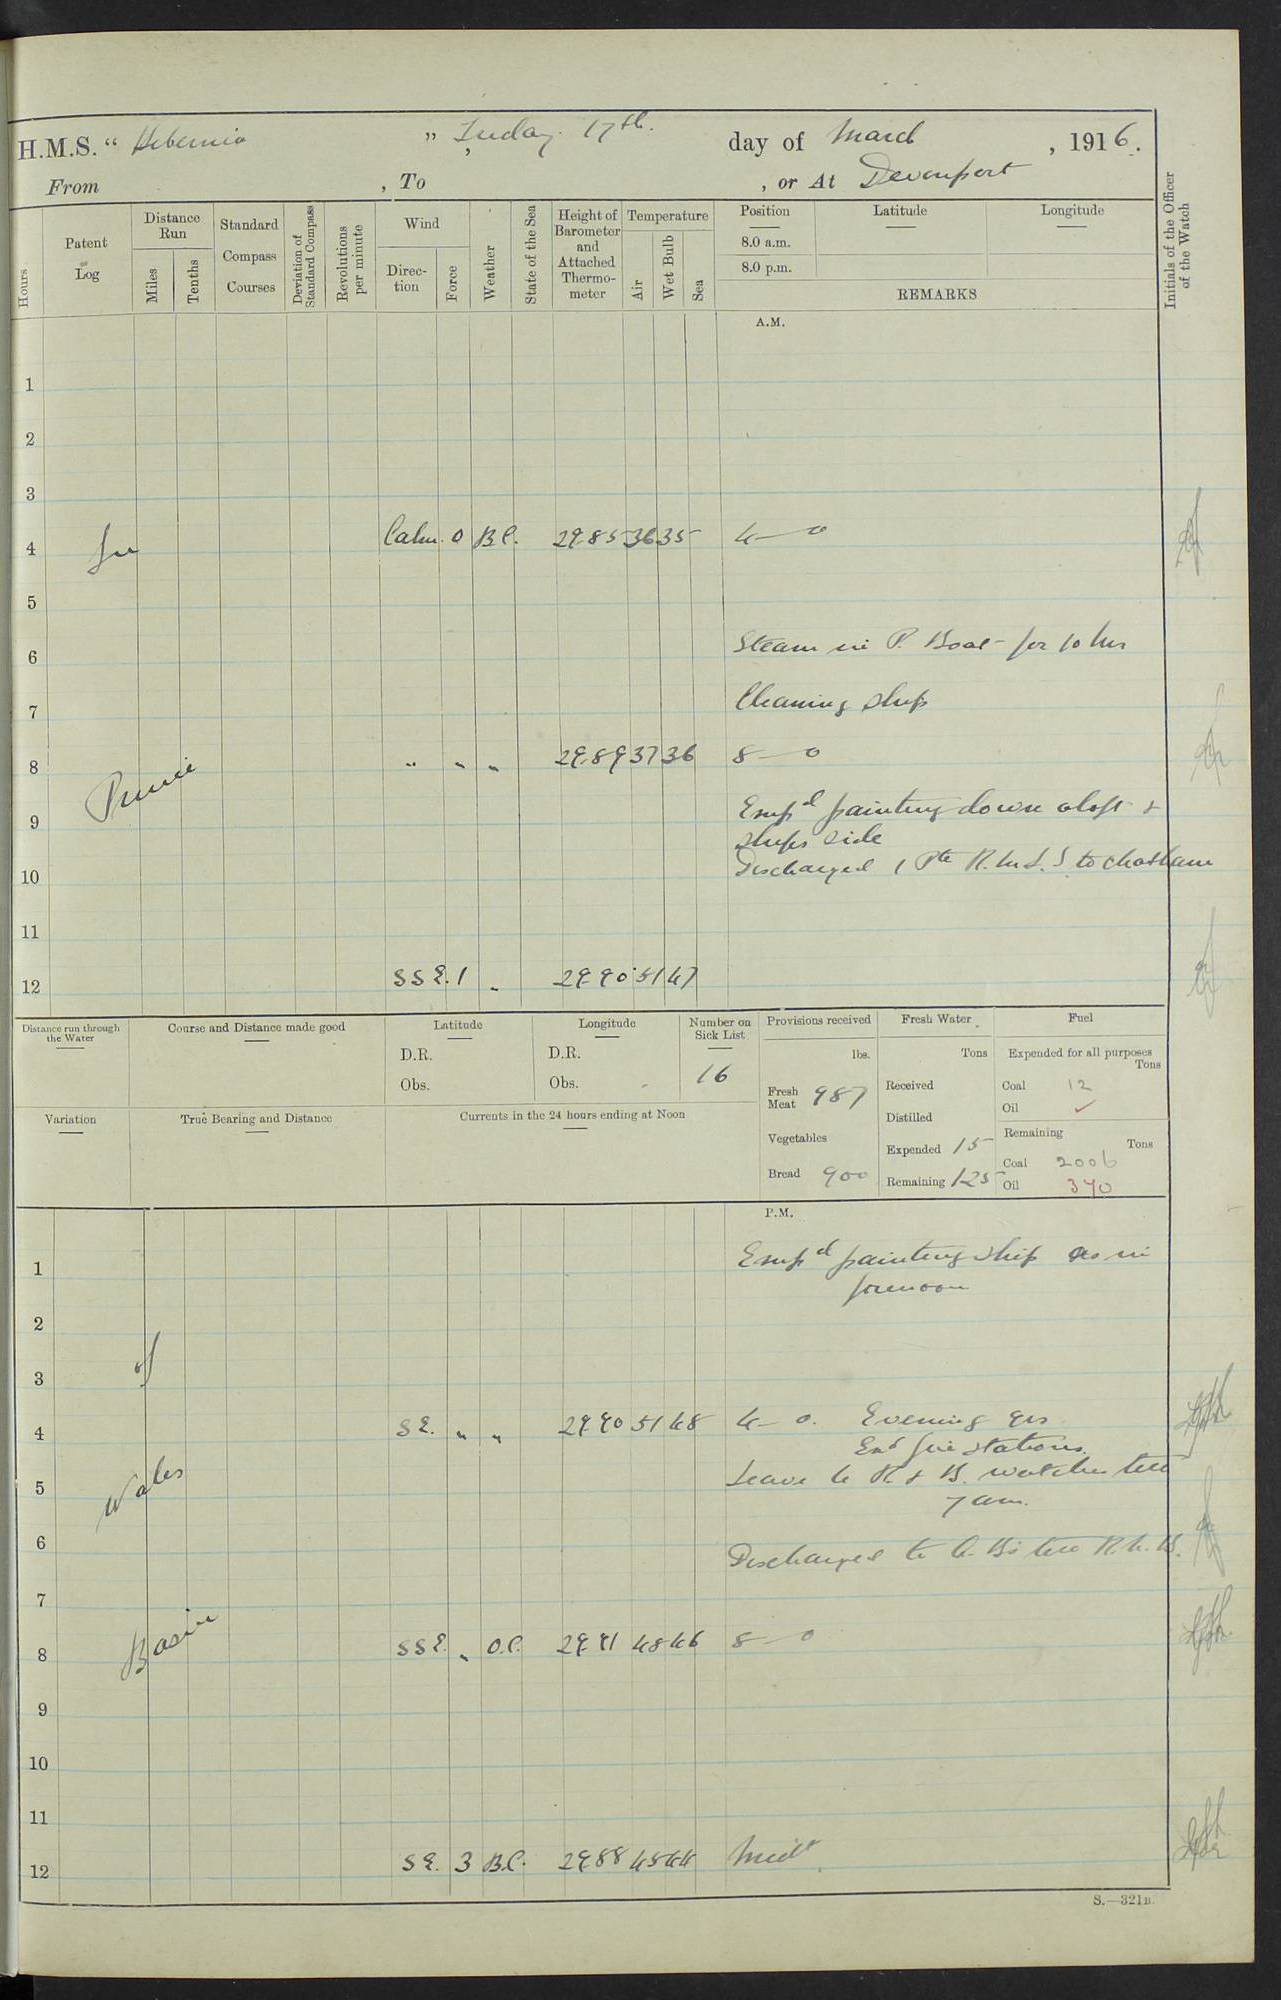 H.M.S. “ Hibernia ” Friday 17th. day of March , 1916.
From , To , or At Devonport
Hours
Patent Log
Distance Run
Miles
Tenths
Standard Compass Courses
Deviation of Standard Compass
Revolutions per minute
Wind
Direction
Force
Weather
State of the Sea
Height of Barometer and Attached Thermometer
Temperature
Air
Wet Bulb
Sea
Position
8.0 a.m.
8.0 p.m.
Latitude
Longitude
REMARKS
Initials of the Officer of the Watch
A.M.
1
2
3
4 In Calm. 0 B.C. 29.85 36 35 4—0
5
6 Steam in P. Boat for 10 hrs
7 Cleaning Ship
8 Prince " " " 29.89 37 36 8—0
9 Empd painting down aloft &
ships side
10 Discharged 1 Pte R.M.L.I. to Chatham
11
12 SSE. 1 " 29.90 51 47
Distance run through the Water
Course and Distance made good
Latitude
D.R.
Obs.
Longitude
D.R.
Obs.
Number on Sick List
16
Provisions received
lbs.
Fresh Meat 987
Vegetables
Bread 900
Fresh Water
Tons
Received
Distilled
Expended 15
Remaining 125
Fuel
Expended for all purposes
Tons
Coal 12
Oil ✓
Remaining
Tons
Coal 2006
Oil 370
Variation
True Bearing and Distance
Currents in the 24 hours ending at Noon
P.M.
1 Empd painting ship as in
forenoon
2
3 of
4 SE. " " 29.90 51 48 4—0. Evening qrs
Exd fire stations.
5 Wales Leave to R & B. watches till
7 am.
6 Discharged to R.N.B.
7
8 Basin SSE. " O.C. 29.91 48 46 8—0
9
10
11
12 SE. 3 B.C. 29.88 45 44 Midt
S.—321B.